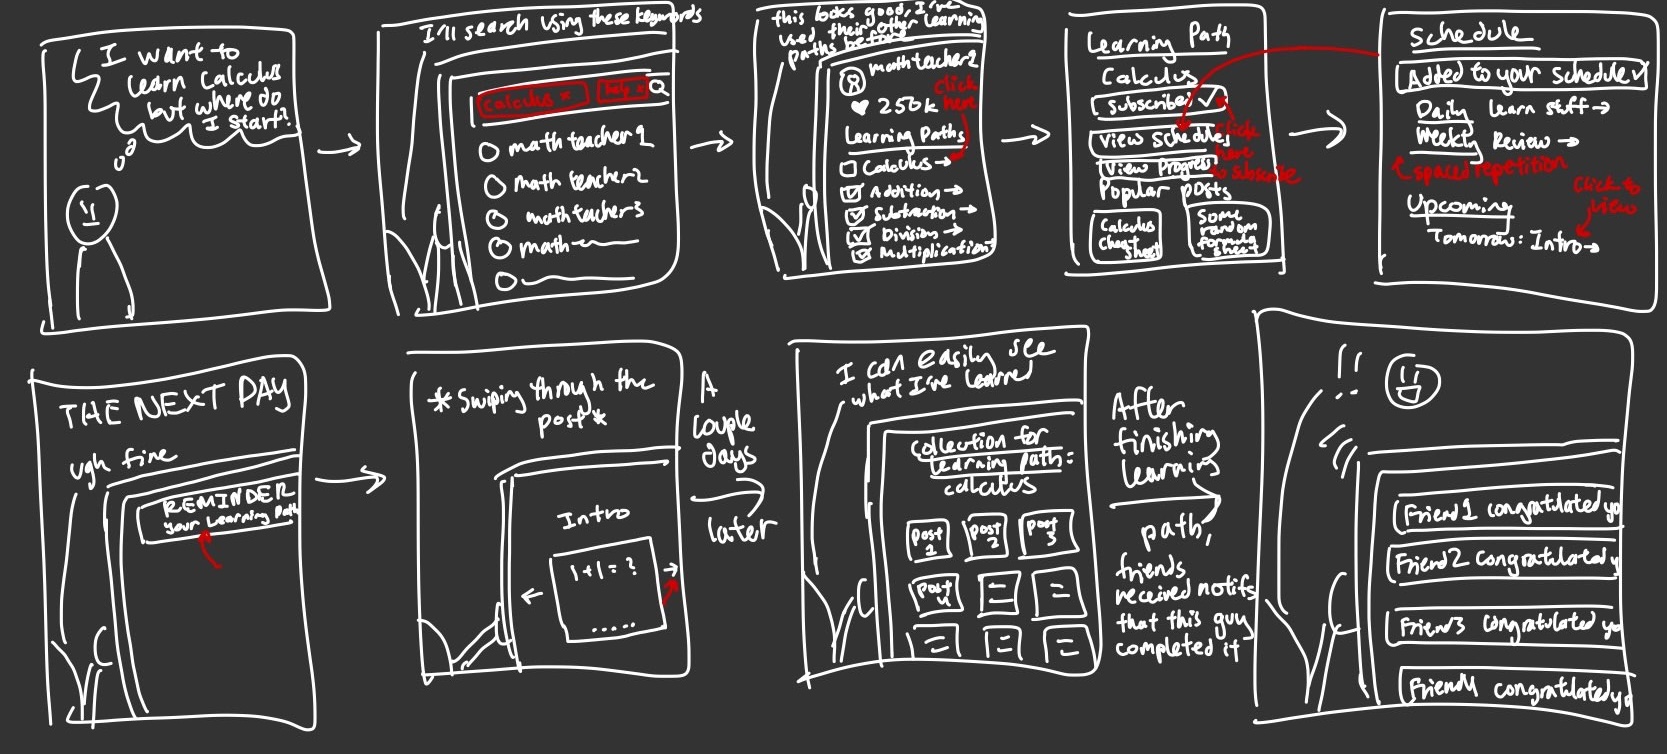 I want to
learn Calculus
but where do
I start?
I'll search using these keywords
calculus ×
help ×
math teacher 1
math teacher2
math teacher3
math
this looks good, I've
used their other learning
paths before
mathteacher1
250k
click
here
Learning Paths
Calculus →
Addition →
Subtraction →
Division →
Multiplication
Learning Path
Calculus
Subscribed ✓
View Schedule
View Progress
click
here
to subscribe
Popular posts
Calculus
cheat
sheet
Some
random
formula
sheet
Schedule
Added to your schedule ✓
Daily Learn stuff →
Weekly Review →
spaced repetition
Click to
view
Upcoming
Tomorrow: Intro →
THE NEXT DAY
ugh fine
REMINDER
your Learning Path
*Swiping through the
post*
Intro
1+1=?
.....
A
couple
days
later
I can easily see
what I've learned
Collection for
learning path:
calculus
post
1
post
2
post
3
post
4
After
finishing
learning
path,
friends
received notifs
that this guy
completed it
!!
Friend1 congratulated yo
Friend2 congratulated yo
Friend3 congratulated yo
Friend4 congratulated yo